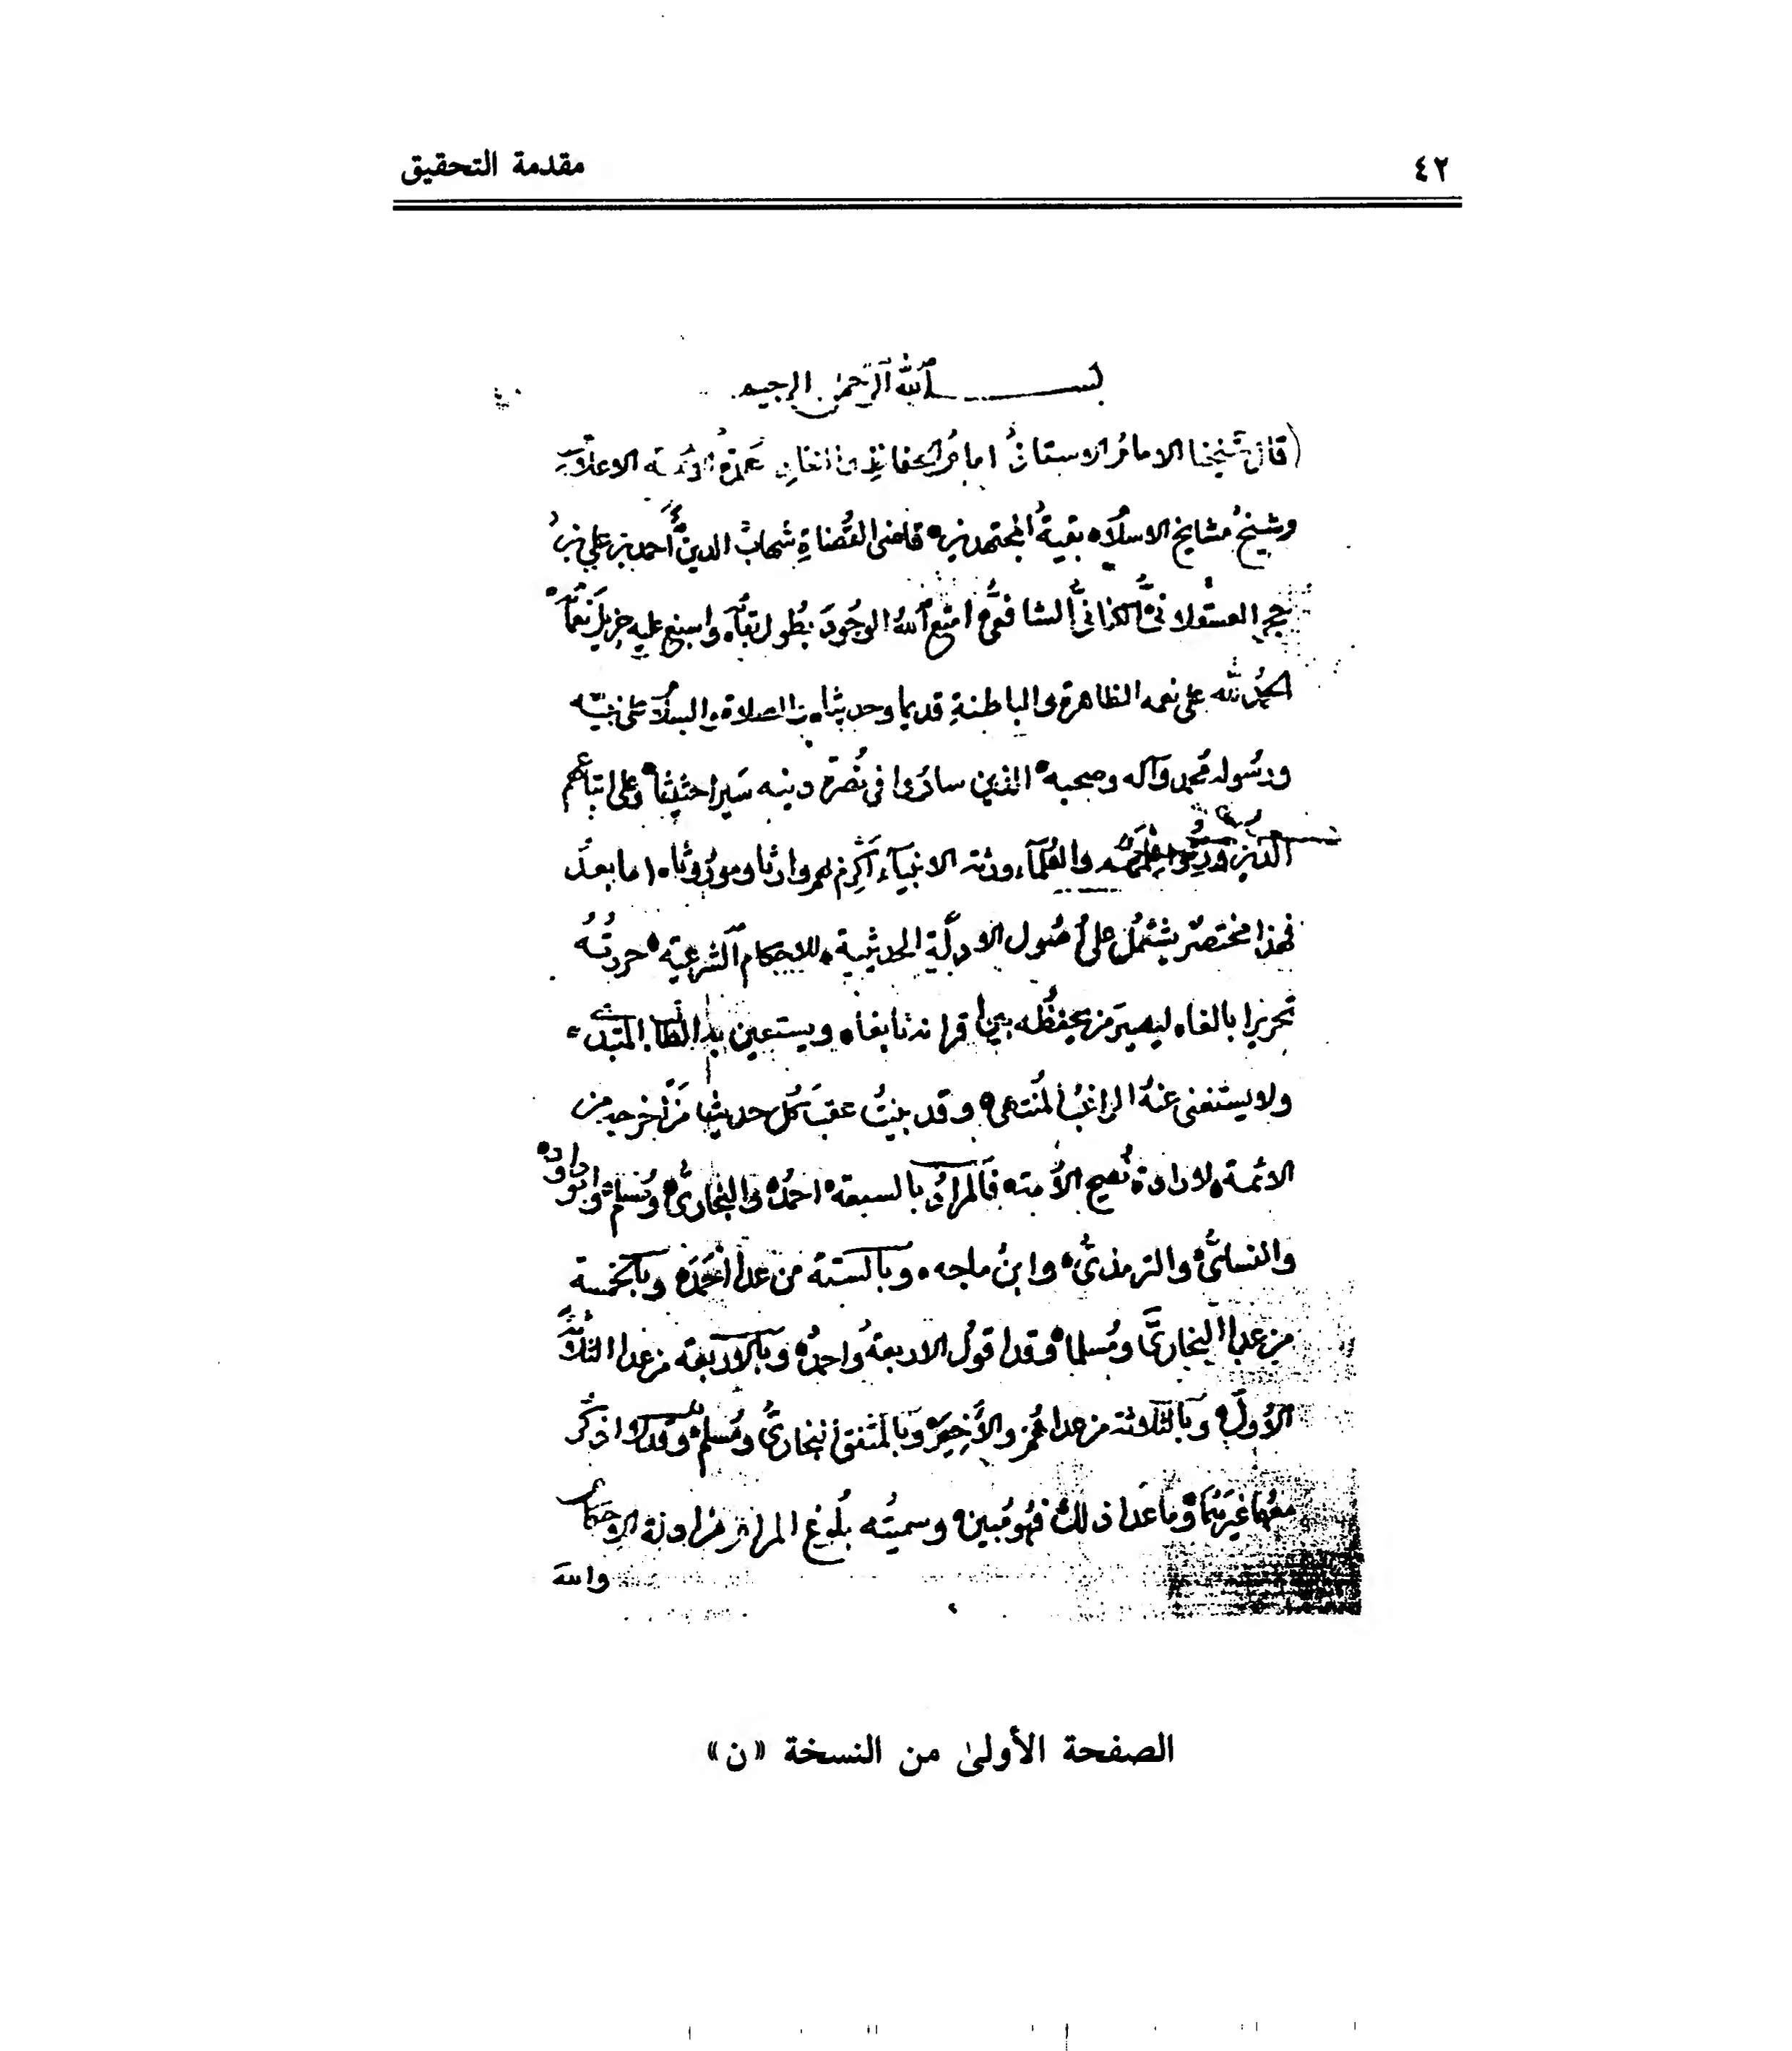 ٤٢ مقدمة التحقيق
بسم الله الرحمن الرحيم
قال شيخنا الامام الاستاذ امام الحفاظ عمدة الاعلام
وشيخ مشايخ الاسلام بقية المجتهدين قاضى القضاة شهاب الدين أحمد بن علي بن
حجر العسقلاني الكناني الشافعي امتع الله الوجود بطول بقآه واسبغ عليه جزيل نعمآه
الحمد لله على نعمه الظاهرة والباطنة قديما وحديثا والصلاة والسلام على نبيه
ورسوله محمد وآله وصحبه الذين ساروا في نصرة دينه سيرا حثيثا وعلى اتباعهم
الذين ورثوا علمهم والعلمآء ورثة الانبيآء اكرم بهم وارثا وموروثا اما بعد
فهذا مختصر يشتمل على أصول الادلة الحديثية للاحكام الشرعية حررته
تحريرا بالغا ليصير من يحفظه بين اقرانه نابغا ويستعين به الطالب المبتدي
ولا يستغنى عنه الراغب المنتهى وقد بينت عقب كل حديث من اخرجه من
الائمة لارادة نصح الأمة فالمراد بالسبعة احمد والبخاري ومسلم وابو داود
والنسائي والترمذي وابن ماجه وبالستة من عدا احمد وبالخمسة
من عدا البخاري ومسلما وقد اقول الاربعة واحمد وبالاربعة من عدا الثلاثة
الأول وبالثلاثة من عداهم والأخير وبالمتفق البخاري ومسلم وقد لا اذكر
معهما غيرهما وما عدا ذلك فهو مبين وسميته بلوغ المرام من ادلة الاحكام
والله
الصفحة الأولى من النسخة «ن»